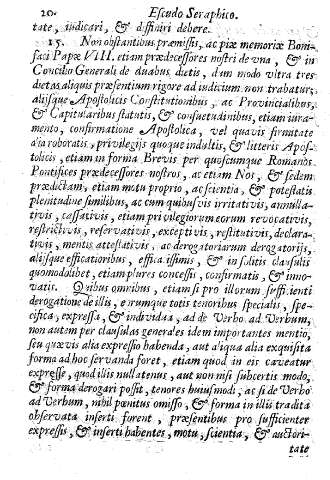 20. Escudo Seraphico.
tate, iudicari, & diffiniri debere.
15. Non obstantibus præmissis, ac piæ memoriæ Boni-
faci Papæ VIII. etiam prædecessores nostri de vna, & in
Concilio Generali de duabus dietis, dum modo vltra tres
dietas aliquis præsentium rigore ad iudicium non trabatur,
alijsque Apostolicis Constitutionibus, ac Prouincialibus,
& Capitularibus statutis, & consuetudinibus, etiam iura-
mento, confirmatione Apostolica, vel quauis firmitate
alia roboratis, priuilegijs quoque indultis, & litteris Apos-
tolicis, etiam in forma Brevis per quoscumque Romanos
Pontifices prædecessores nostros, ac etiam Nos, & sedem
prædictam, etiam motu proprio, ac scientia, & potestatis
plenitudine similibus, ac cum quibusuis irritatiuis, annulla-
tiuis, cassatiuis, etiam priuilegiorum eorum reuocatiuis,
restrictiuis, reseruatiuis, exceptiuis, restitutiuis, declara-
tiuis, mentis attestatiuis, ac derogatoriarum derogatorijs,
alijsque efficatioribus, efficacissimis, & insolitis clausulis
quomodolibet, etiam plures concessis, confirmatis, & inno-
uatis. Quibus omnibus, etiam si pro illorum sufficienti
derogatione de illis, eorumque totis tenoribus specialis, spe-
cifica, expressa, & indiuidua, ac de Verbo ad Verbum,
non autem per clausulas generales idem importantes mentio,
seu quæuis alia expressio habenda, aut aliqua alia exquisita
forma ad hoc seruanda foret, etiam quod in eis caueatur
expresse, quod illis nullatenus, aut non nisi subcertis modo,
& forma derogari possit, tenores huiusmodi, ac si de Verbo
ad Verbum, nihil pœnitus omisso, & forma in illis tradita
obseruata inserti forent, præsentibus pro sufficienter
expressis, & inserti habentes, motu, scientia, & auctori-
tate